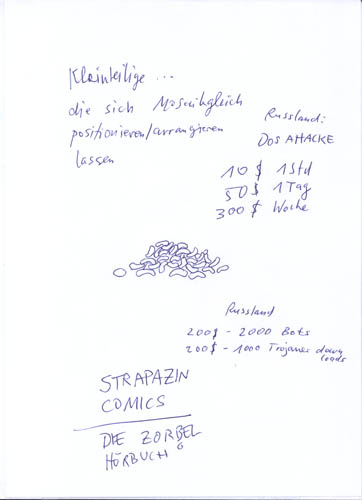 Kleinteilige ...
die sich Mosaikgleich
positionieren/arrangieren
lassen
Russland:
DOS ATTACKE
10 $ 1 Std
50 $ 1 Tag
300 $ Woche
Russland
200$ - 2000 Bots
200$ - 1000 Trojaner down
loads
STRAPAZIN
COMICS
DIE ZORBEL
HÖRBUCH